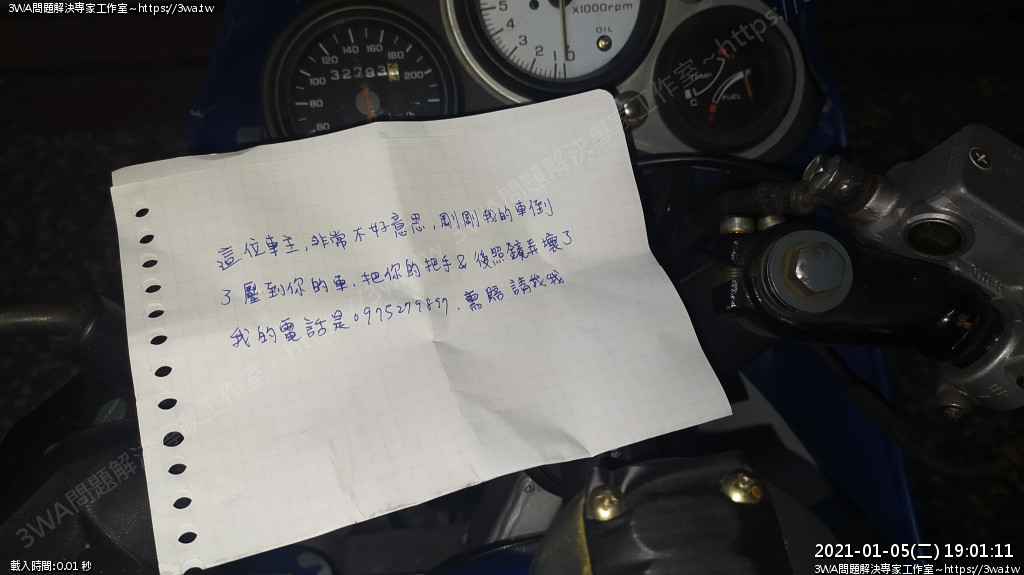 3WA問題解決專家工作室~https://3wa.tw
x1000rpm
OIL
5
4
3
2
1
0
60
80
100
120
140
160
180
200
32793
km/h
TEMP
C
FUEL
這位車主,非常不好意思,剛剛我的車倒
了壓到你的車.把你的把手&後照鏡弄壞了
我的電話是0975279897.需賠請找我
3WA問題解決專家工作室~https://3wa.tw
載入時間:0.01 秒
2021-01-05(二) 19:01:11
3WA問題解決專家工作室~https://3wa.tw